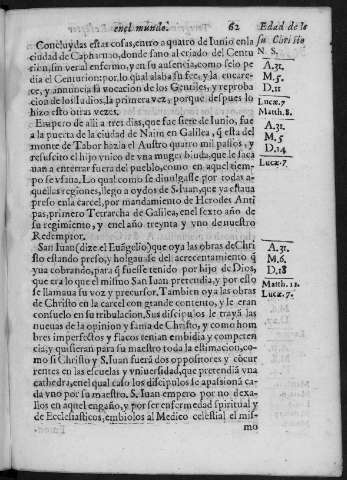 enel mundo. 62 Edad de Iesu Christo
N. S.
Concluydas estas cosas, entro a quatro de Iunio en la
ciudad de Capharnao, donde sano al criado del Centu
rion, sin ver al enfermo, y en su ausencia, como selo pe
dia el Centurion: por lo qual alaba su fee, y la encare-
ce, y annuncia la vocacion de los Gentiles, y reproba
cion de los Iudios, la primera vez, porque despues lo
hizo otras vezes.
A. 31.
M. 5.
D. 11
Lucæ. 7
Matth. 8.
Empero de alli a tres dias, que fue siete de Iunio, fue
a la puerta de la ciudad de Naim en Galilea, q̃ esta del
monte de Tabor hazia el Austro quatro mil passos, y
resuscito el hijo vnico de vna muger biuda, que le saca
uan a enterrar fuera del pueblo, como en aquel tiem-
po se vsaua. Lo qual como se diuulgasse por todas a-
quellas regiones, llego a oydos de S. Iuan, que ya estaua
preso en la carcel, por mandamiento de Herodes Anti
pas, primero Tetrarcha de Galilea, enel sexto año de
su regimiento, y enel año treynta y vno de nuestro
Redemptor.
A. 31.
M. 5
D. 14
Lucæ. 7
San Iuan (dize el Euãgelio) que oya las obras de Chri
sto estando preso, y holgauase del acrecentamiento q̃
yua cobrando, para q̃ fuesse tenido por hijo de Dios,
que era lo que el mismo San Iuan pretendia, y por esso
se llamaua su voz y precursor. Tambien oya las obras
de Christo en la carcel con grande contento, y le eran
consuelo en su tribulacion. Sus discipulos le trayã las
nueuas de la opinion y fama de Christo, y como hom
bres imperfectos y flacos tenian embidia y competen
cia, y quisieran para su maestro toda la estimacion, co-
mo si Christo y S. Iuan fuerã dos oppositores y cõcur
rentes en las escuelas y vniuersidad, que pretendiã vna
cathedra, enel qual caso los discipulos se apassionã ca
da vno por su maestro. S. Iuan empero por no dexa-
llos en aquel engaño, y por ser enfermedad spiritual y
de Ecclesiasticos, embiolos al Medico celestial el mis-
mo
A. 31.
M. 6.
D. 18
Matth. 11.
Lucæ. 7.